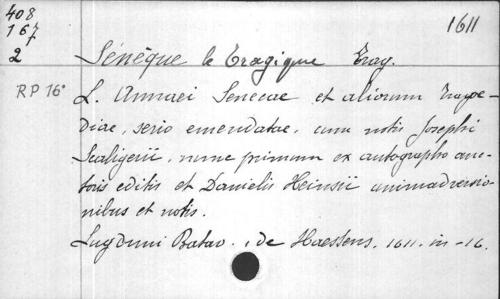 408
167
2
1611
Sénèque le Tragique Trag.
RP 16°
L. Annaei Senecae et aliorum Tragoe-
diae, serio emendatae, cum notis Josephi
Scaligerii, nunc primum ex autographo auc-
toris editis et Danielis Heinsii animadversio-
nibus et notis.
Lugduni Batav., de Haestens, 1611. in-16.